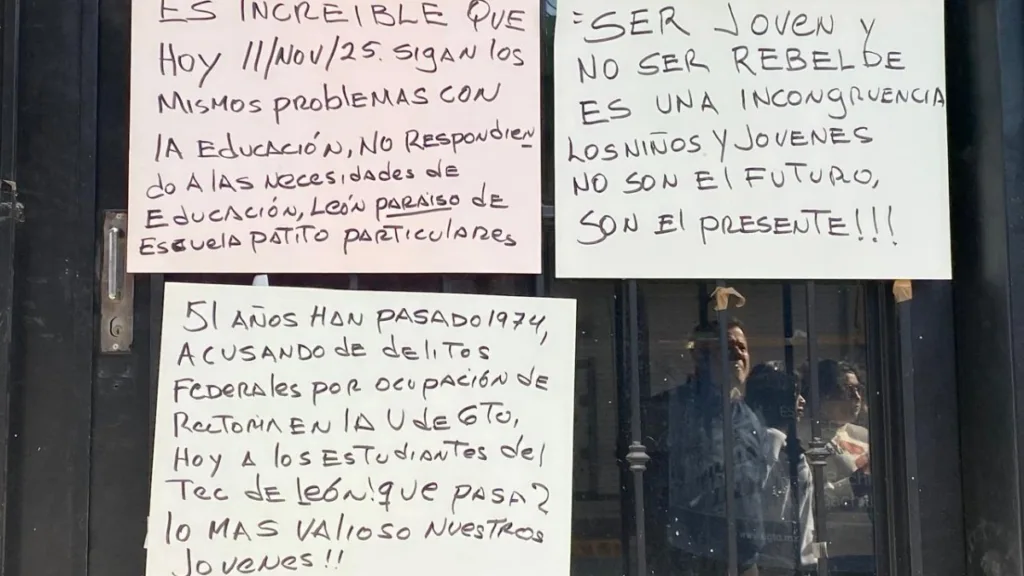 ES INCREIBLE QUE
Hoy 11/NOV/25. SIGAN los
MISMOS PROBLEMAS CON
lA EducACIÓN, NO RESPONdIEN
do A lAS NECESIdAdES dE
EducACIÓN, LEÓN PARAISO dE
EscuElA PATITO PARTICULARES
=SER JOVEN y
NO SER REBELDE
ES UNA INCONGRUENCIA
LOS NIÑOS Y JOVENES
NO SON El FUTURO,
SON El PRESENTE!!!
51 AÑOS HAN PASADO 1974,
ACUSANDO dE dElITOS
FEdERAlES POR OCUPACIÓN dE
RECTORIA EN lA U dE GTO,
Hoy A los ESTUdIANTES dEl
TEC dE LEÓN! QUE PASA?
lO MAS VAlIOSO NUESTROS
JOVENES!!